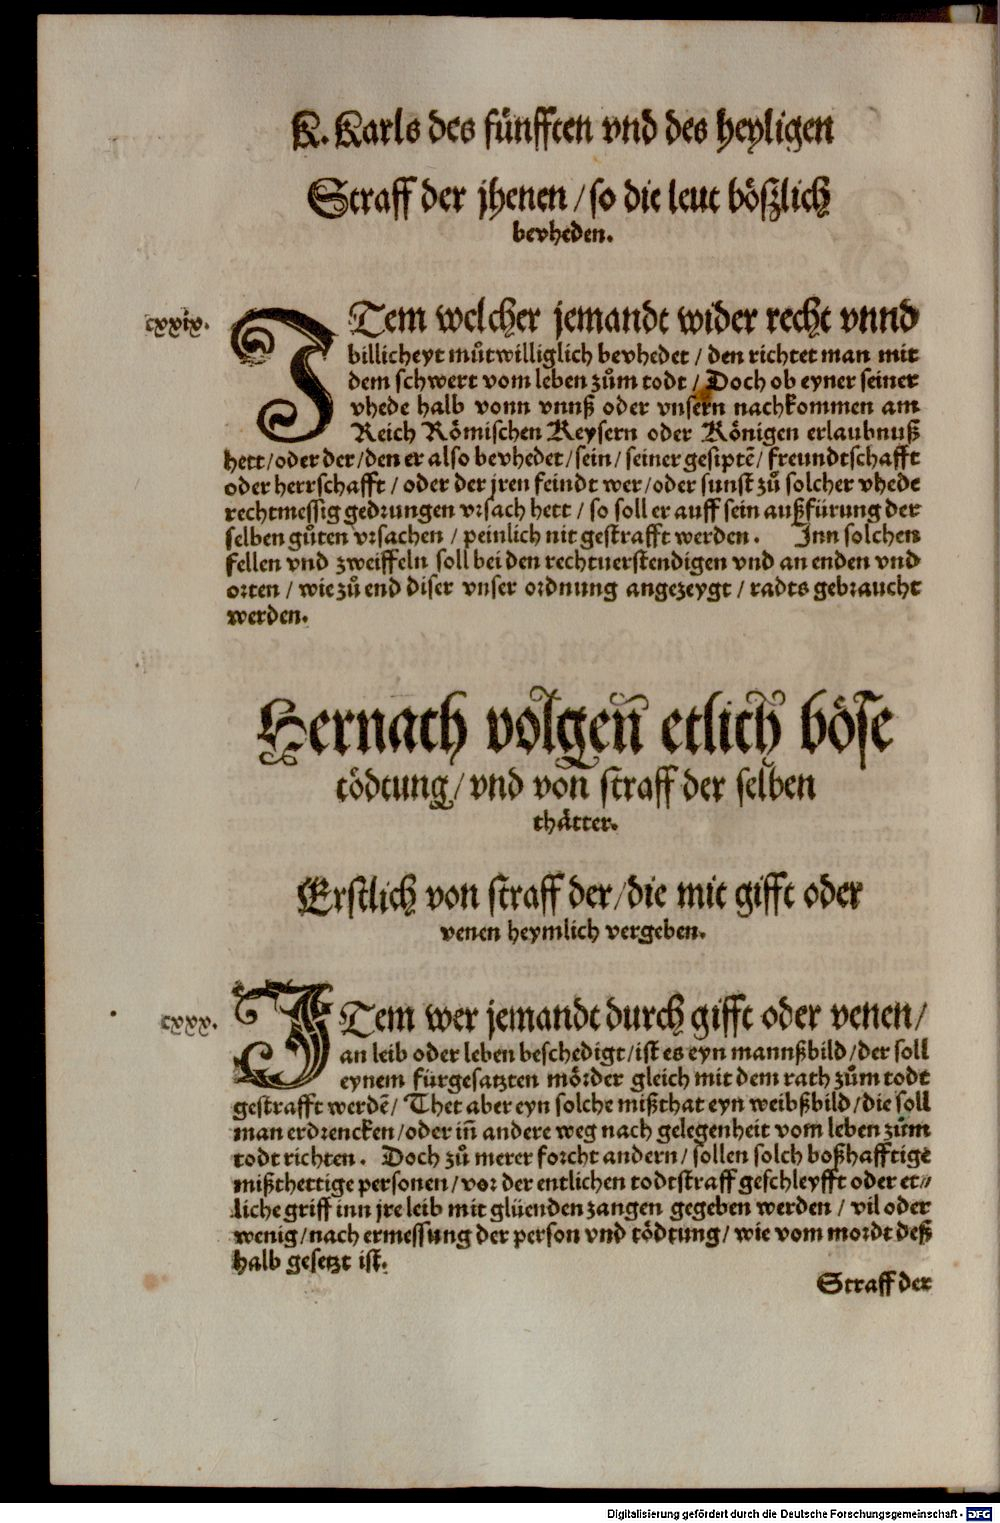 K. Karls des fünfften vnd des heyligen
Straff der jhenen / so die leut bößlich
bevheden.
cxxix.
ITem welcher jemandt wider recht vnnd
billicheyt můtwilliglich bevhedet / den richtet man mit
dem schwert vom leben zům todt / Doch ob eyner seiner
vhede halb vonn vnnß oder vnsern nachkommen am
Reich Römischen Keysern oder Königen erlaubnuß
hett / oder der / den er also bevhedet / sein / seiner gesiptē / freundtschafft
oder herrschafft / oder der jren feindt wer / oder sunst zů solcher vhede
rechtmessig gedrungen vrsach hett / so soll er auff sein außfürung der
selben gůten vrsachen / peinlich nit gestrafft werden. Inn solchen
fellen vnd zweiffeln soll bei den rechtuerstendigen vnd an enden vnd
orten / wie zů end diser vnser ordnung angezeygt / radts gebraucht
werden.
Hernach volgen̄ etlich böse
tödtung / vnd von straff der selben
thätter.
Erstlich von straff der / die mit gifft oder
venen heymlich vergeben.
cxxx.
ITem wer jemandt durch gifft oder venen /
an leib oder leben beschedigt / ist es eyn mannßbild / der soll
eynem fürgesatzten mörder gleich mit dem rath zům todt
gestrafft werdē / Thet aber eyn solche mißthat eyn weibßbild / die soll
man erdrencken / oder iñ andere weg nach gelegenheit vom leben zům
todt richten. Doch zů merer forcht andern / sollen solch boßhafftige
mißthettige personen / vor der entlichen todtstraff geschleyfft oder et⸗
liche griff inn jre leib mit glüenden zangen gegeben werden / vil oder
wenig / nach ermessung der person vnd tödtung / wie vom mordt deß
halb gesetzt ist.
Straff der
Digitalisierung gefördert durch die Deutsche Forschungsgemeinschaft - DFG